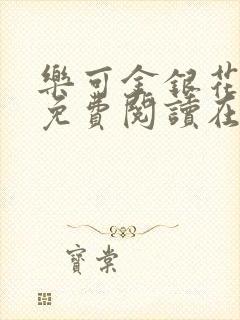 樂可金銀花
免費閱讀在
寶棠